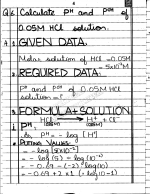 Q6 Calculate pH and pOH of
0.05M HCl solution.
GIVEN DATA.
Molar solution of HCl = 0.05M
= 5x10⁻²M
REQUIRED DATA:
pH and pOH of 0.05M HCl
solution = ?
FORMULA + SOLUTION
HCl → H⁺ + Cl⁻
As, pH = -log [H⁺]
PUTING VALUES:
= -log [5x10⁻²]
= -log (5) - log (10⁻²)
= -0.69 - (-2) log (10)
= -0.69 + 2 x 1 (∴ log 10 = 1)